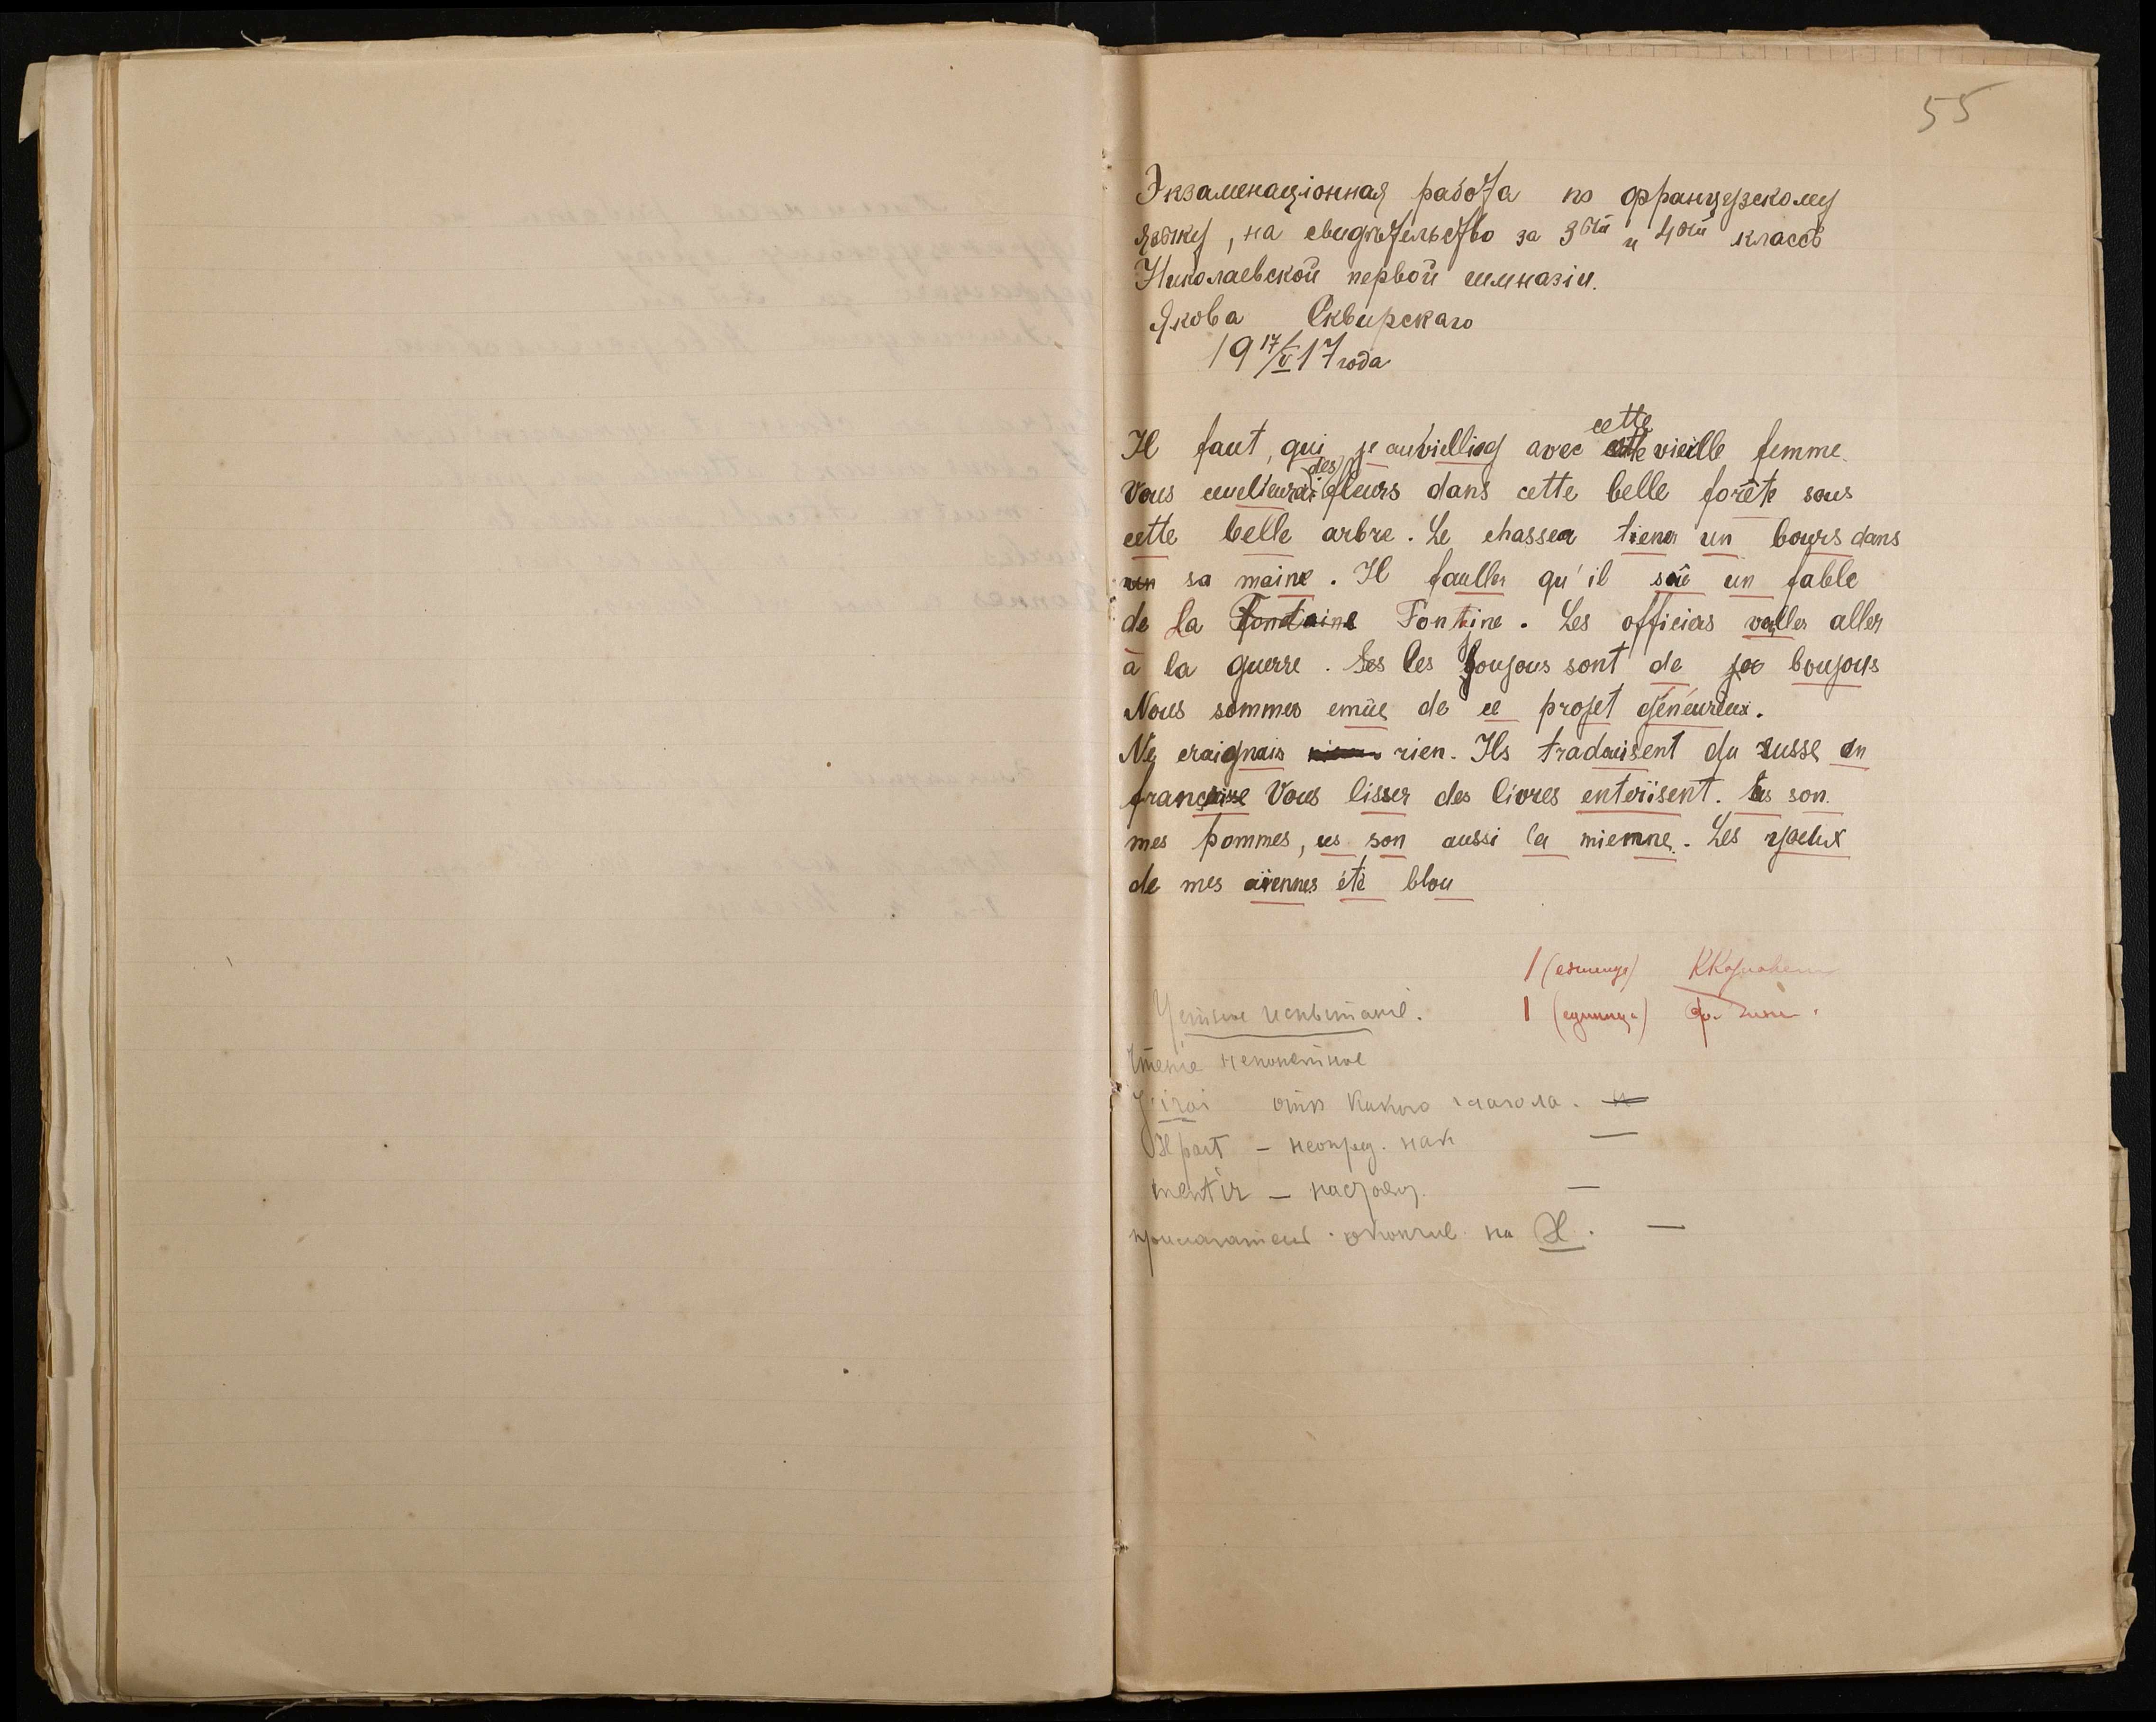 55
Экзаменаціонная работа по французскому
языку, на свидѣтельство за 3ой и 4ой классъ
Николаевской первой гимназіи.
Якова Сквирскаго
19 17/V 17 года
cette
Il faut, qui je auviellieg avec cette vieille femme.
des
Vous ceuelieurai fleurs dans cette belle forête sous
cette belle arbre. Le chasseur tiener un bours dans
un sa maine. Il fauller qu'il sue un fable
de la Fontaine Fontine. Les officiers valler aller
à la guerre. Ses les joujous sont de boujous
Nous sommes emûe de ce projet généureux.
Ne craignais rien. Ils traduisent du russe en
française Vous lisser des livres enteriisent. son
mes pommes, ces son aussi la mienne. Les yoeux
de mes aïennes été blou
1 (единица)
Устное испытаніе. 1 (единица)
Чтеніе
J'irai отъ какого глагола. —
Il part — неопред. нак —
mentir — настоящ. —
прилагательн. на